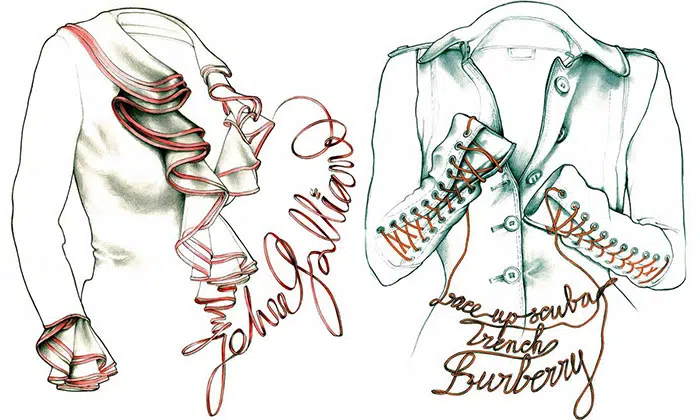 John Galliano
Lace up scuba
Trench
Burberry